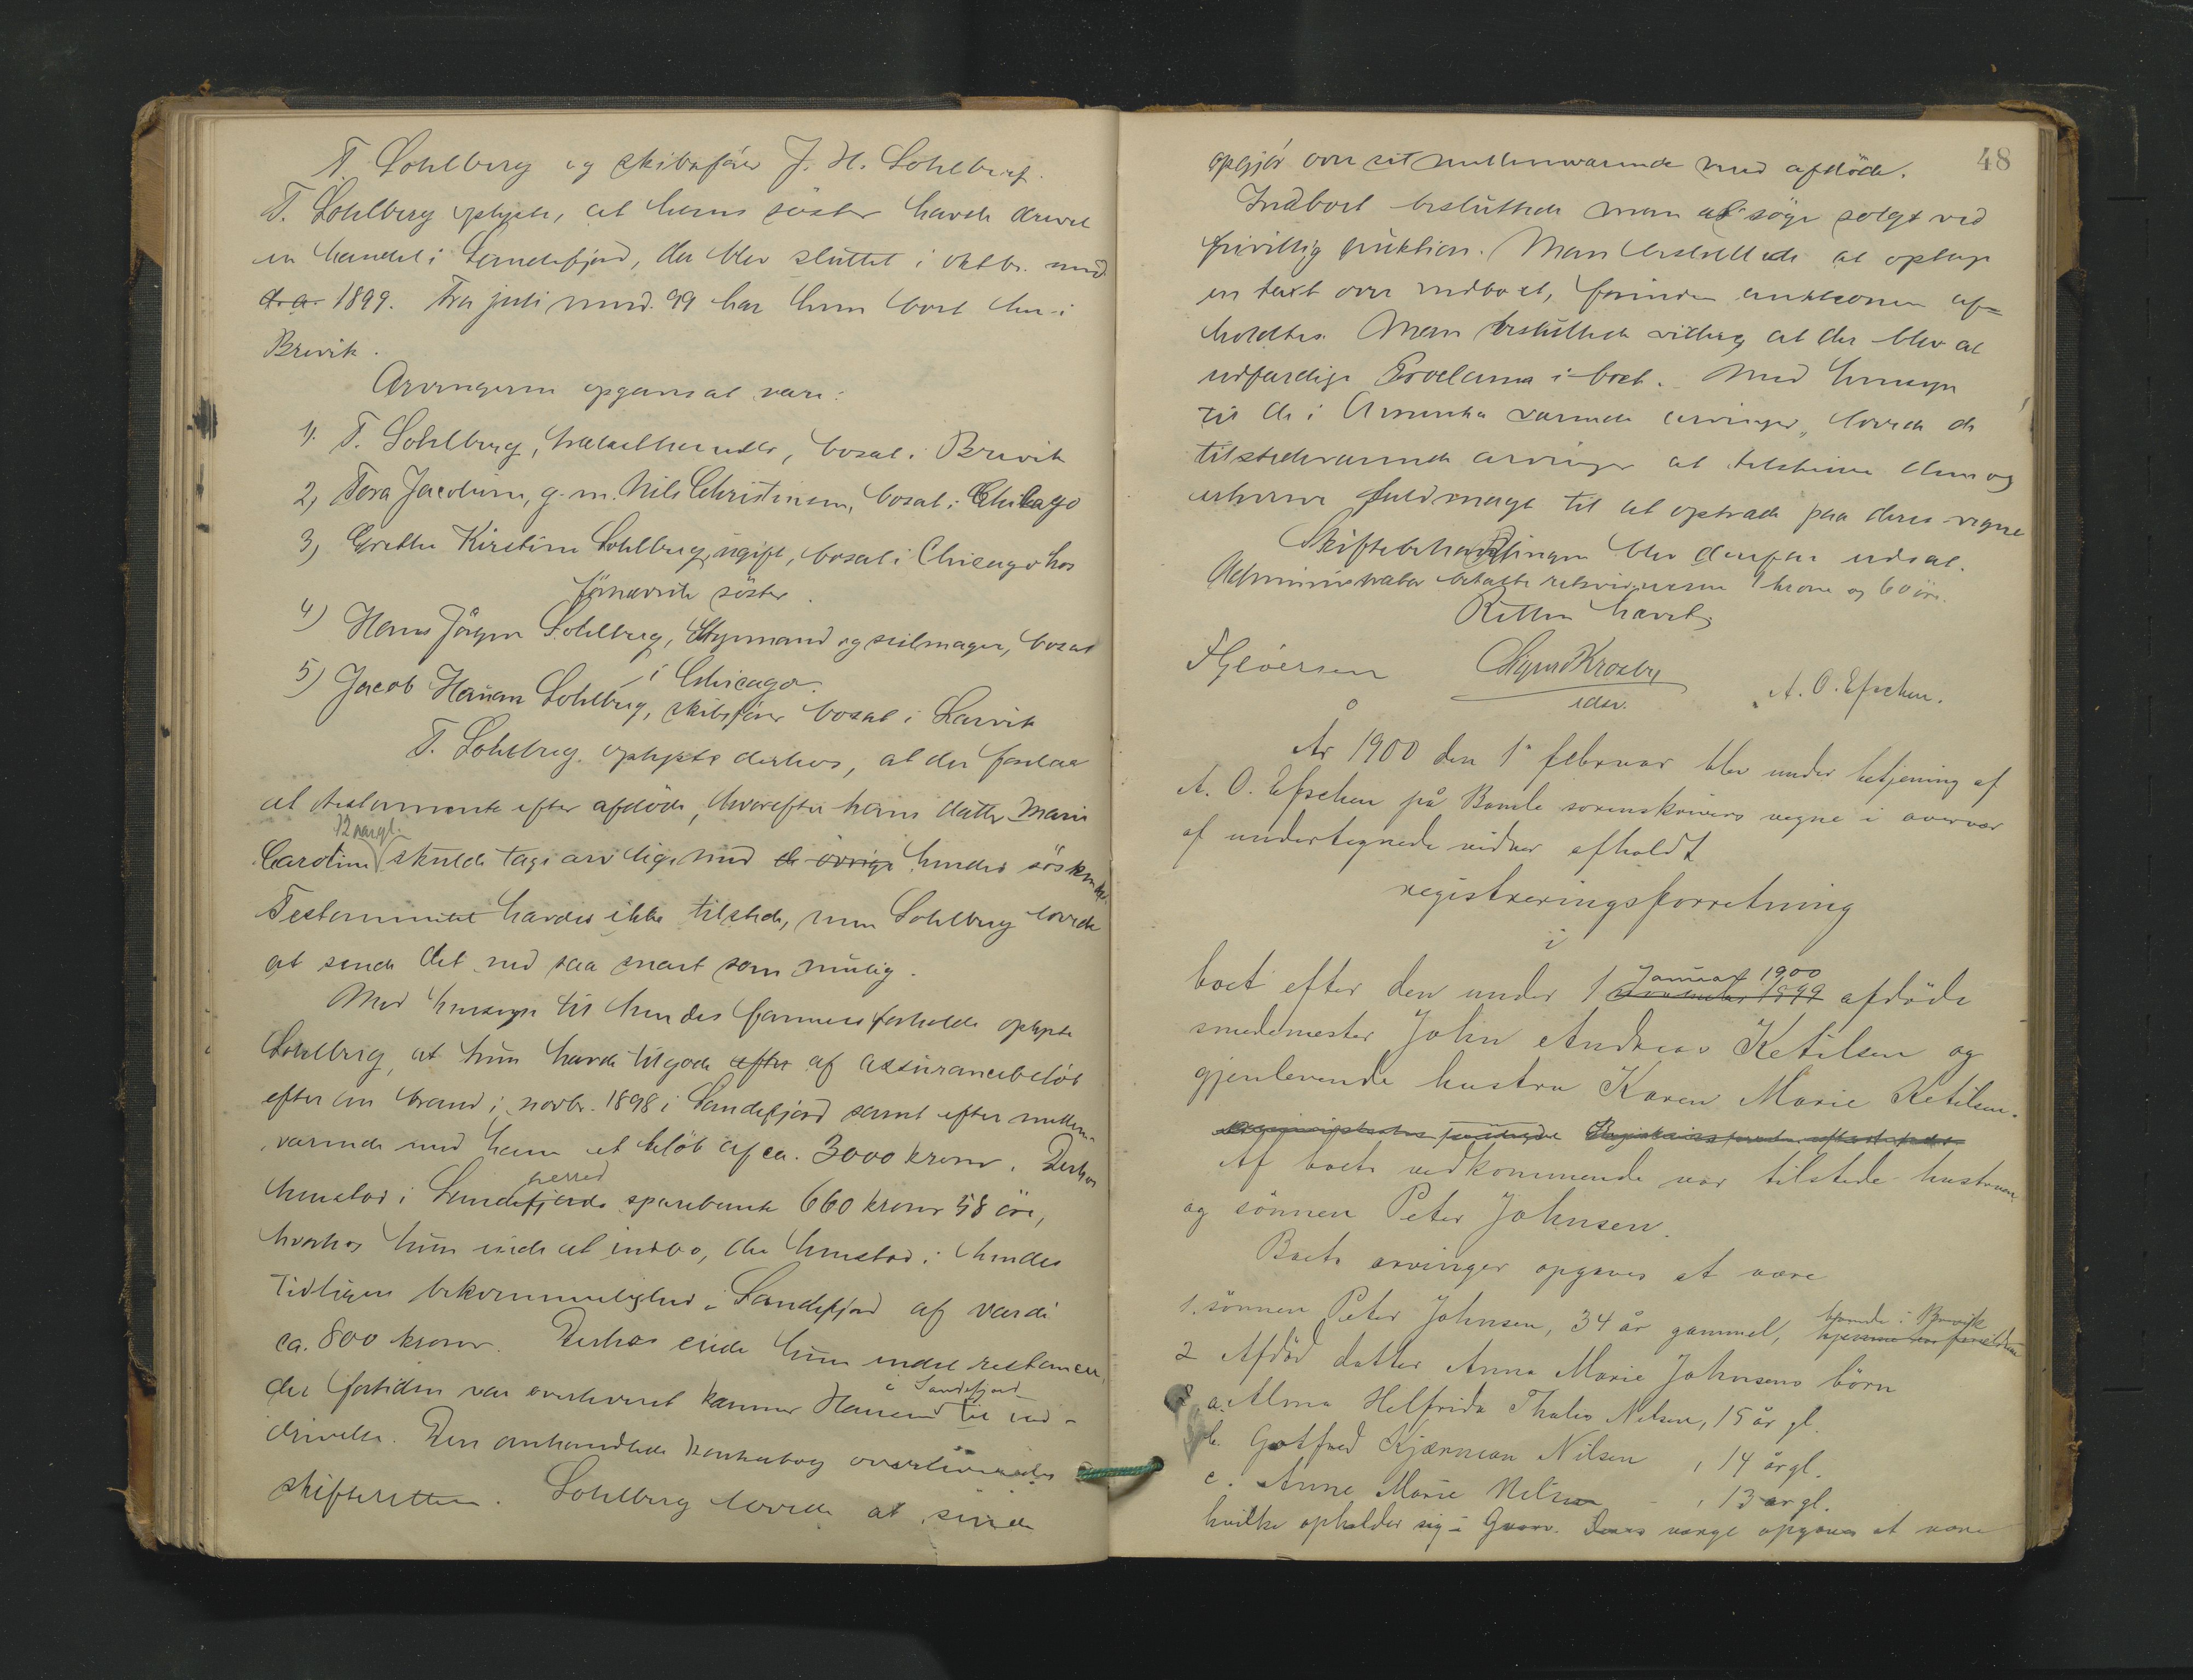 T. Sohlberg og skibsfører J. H. Sohlberg.
T. Sohlberg oplyste, at hans søster havde drevet
en handel i Sandefjord, der blev sluttet i oktbr. md
d. a. 1899. Fra juli md. 99 har hun boet her i
Brevik.
Arvingerne opgaves at være:
1). T. Sohlberg, handelsmand, bosat i Brevik
2) Tora Jacobine, g. m. Nils Christensen, bosat i Chicago
3) Grethe Kirstine Sohlberg, ugift, bosat i Chicago hos
førnævnte søster.
4) Hans Jørgen Sohlberg, Styrmand og seilmager, bosat
i Chicago.
5) Jacob Hansen Sohlberg, skibsfører bosat i Larvik
T. Sohlberg oplyste derhos, at der forelaa
et testamente efter afdøde, hvorefter hans datter Marie
12 aar gl.
Caroline skulde tage arv lige med de øvrige hendes søskende.
Testamentet havdes ikke tilstede, men Sohlberg lovede
at sende det ned saa snart som mulig.
Med hensyn til hendes formuesforholde oplyste
Sohlberg, at hun havde tilgode efter af assurancebeløb
efter en brand i novbr. 1898 i Sandefjord samt efter mellem-
værende med ham et beløb af ca. 3000 kroner. Derhos
herred
henstod i Sandefjords sparebank 660 kroner 58 øre,
hvorhos hun eiede et indbo, der henstod i hendes
tidligere bekvemmelighed i Sandefjord af værdi
ca. 800 kroner. Derhos eiede hun endel restancer,
i Sandefjord
der fortiden var overleveret Hansen til ind-
drivelse. Den omhandlede bankabog overleveredes
skifteretten. Sohlberg lovede at sende
48
opgjør over sit mellemværende med afdøde.
Indboet besluttede man at søge solgt ved
frivillig auktion. Man besluttede at optage
en taxt over indboet, forinden auktionen af=
holdtes. Man besluttede videre, at der blev at
udfærdige Proclama i boet. Med hensyn
til de i Amerika værende arvinger, lovede de
tilstedeværende arvinger at tilskrive dem og
erhverve fuldmagt til at optræde paa deres vegne
Skiftebehandlingen blev derpaa udsat.
Administrator betalte retsvidnerne 1 krone og 60 øre.
Retten hævet
A. O. Efschen.
År 1900 den 1ste februar blev under betjening af
A. O. Efschen på Bamle sorenskrivers vegne i overvær
af undertegnede vidner afholdt
registreringsforretning
i
Januar 1900
boet efter den under 1 1899 afdøde
smedemester John Andreas Ketilsen og
gjenlevende hustru Karen Marie Ketilsen.
Af boets vedkommende var tilstede hustruen
og sønnen Peter Johnsen.
Boets arvinger opgaves at være
boende i Brevik
1. sønnen Peter Johnsen, 34 år gammel, hjemme hos forældrene
2 Afdød datter Anna Marie Johnsens børn
a. Alma Helfrida Thalia Nilsen, 15 år gl.
b. Gotfred Kjærman Nilsen, 14 år gl.
c. Anne Marie Nilsen, 13 år gl.
hvilke opholder sig i Deres værge opgaves at være